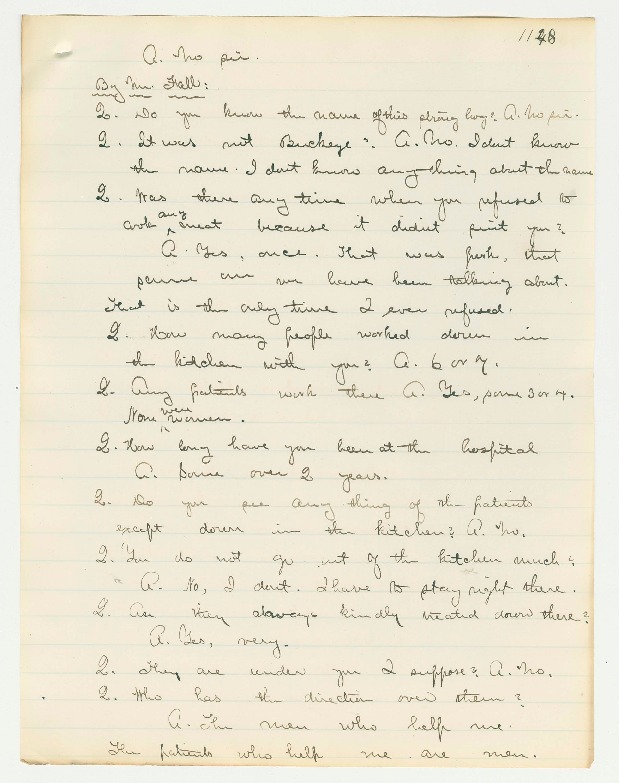 1128
A. No sir.
By Mr. Fall:
Q. Do you know the name of this strong boy? A. No sir.
Q. It was not Buckeye? A. No. I dont know
the name. I dont know anything about the name
Q. Was there any time when you refused to
cook any meat because it didn't suit you?
A. Yes, once. That was fresh, that
same one we have been talking about.
That is the only time I ever refused.
Q. How many people worked down in
the kitchen with you? A. 6 or 7.
Q. Any patients work there A. Yes, some 3 or 4.
None were women.
Q. How long have you been at the hospital
A. Some over 2 years.
Q. Do you see any thing of the patients
except down in the kitchen? A. No.
Q. You do not go out of the kitchen much?
A. No, I dont. I have to stay right there.
Q. Are they always kindly treated down there?
A. Yes, very.
Q. They are under you I suppose? A. No.
Q. Who has the direction over them?
A. The men who help me.
The patients who help me are men.